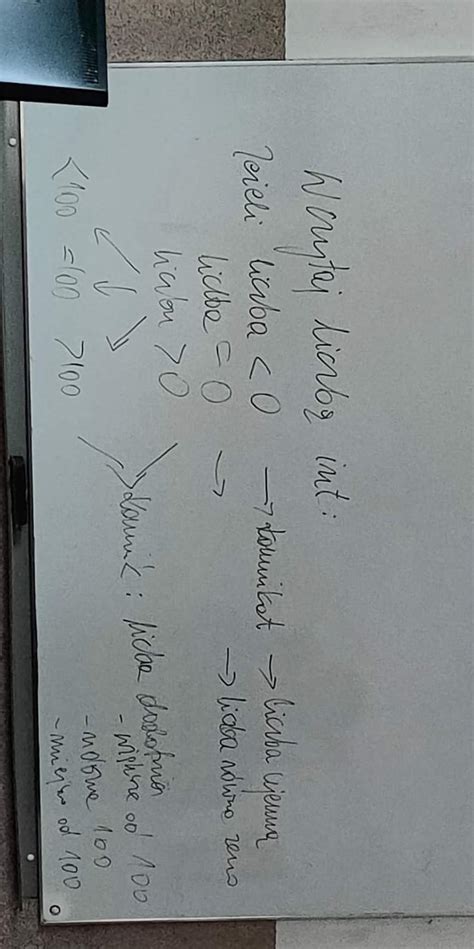 Wczytaj liczbę int:
Jeżeli liczba < 0 → komunikat → liczba ujemna
liczba = 0 → → liczba równa zero
liczba > 0
< 100 = 100 > 100
komunik: liczba dodatnia
- większe od 100
- równe 100
- mniejsze od 100